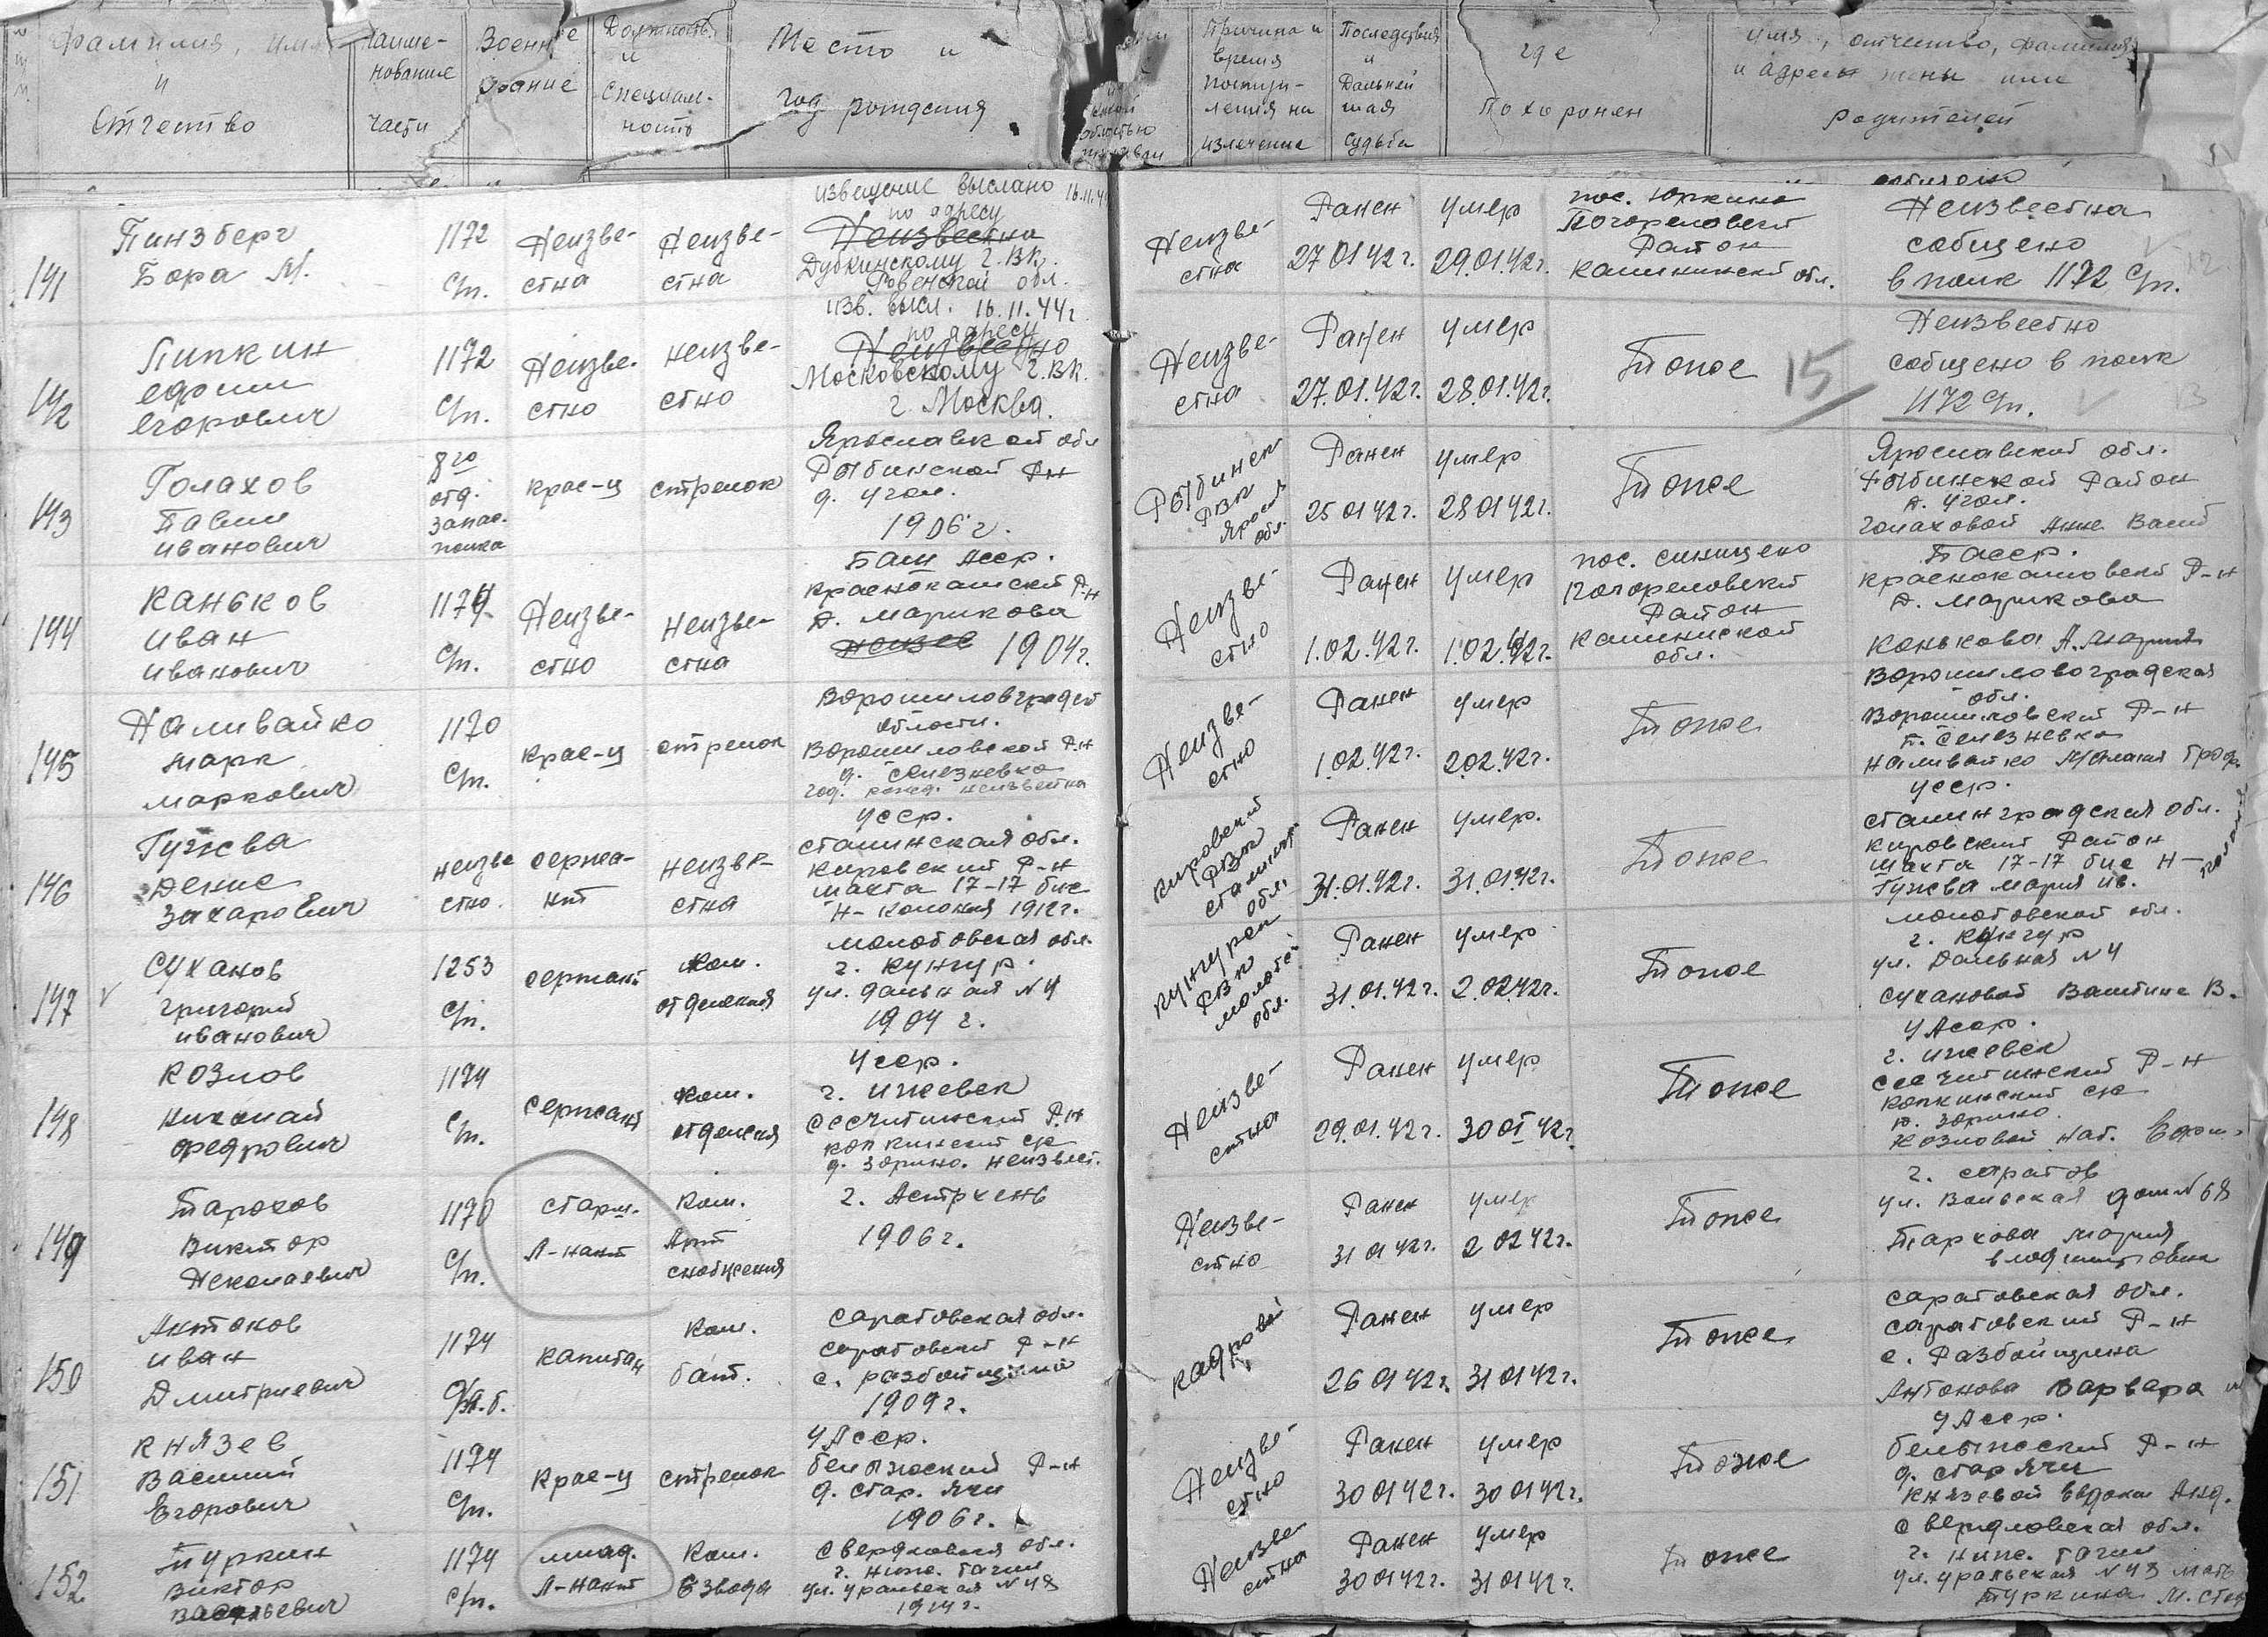 Фамилия, имя
и
Отчество
Наиме-
нование
части
Военное
звание
Должность
и
специаль-
ность
Место и
год рождения
Причина и
время
поступ-
ления на
излечение
Последствия
и
Дальней
шая
судьба
где
похоронен
имя, отчество, фамилия
и адрес жены или
родителей
141
Пинзберг
Бора М.
1172
С/п.
Неизве-
стна
Неизве-
стна
извещение выслано 16.11.44
по адресу
Неизвестна
Дубкинскому г.ВК.
Ровенской обл.
Неизве-
стна
Ранен
27 01 42 г.
умер
29.01.42 г.
пос. Юркино
Погореловский
Район
Калининской обл.
Неизвестна
собщено
в полк 1172 С/п.
142
Пипкин
ефим
егорович
1172
С/п.
Неизве-
стно
неизве-
стно
изв. высл. 16.11.44г
по адресу
Неизвестно
Московскому г.ВК.
г. Москва.
Неизве-
стна
Ранен
27.01.42г.
умер
28.01.42г.
Тоже
15
Неизвестно
собщено в полк
1172 С/п.
143
Голахов
Павел
иванович
8го
отд.
запас.
полка
крас-ц
стрелок
Ярославкой обл
Рыбинской Рн
д. Угол.
1906 г.
Рыбинск
РВК
Яросл
обл.
Ранен
25 01 42 г.
умер
28 01 42 г.
Тоже
Ярославской обл.
Рыбинской Район
д. Угол.
Голаховой Анне Васил
144
Каньков
иван
иванович
1174
С/п.
Неизве-
стно
Неизве-
стна
Баш Асср.
Краснокамский Р-н
д. Марикова
неизвв 1904г.
Неизве-
стно
Ранен
1.02.42г.
умер
1.02.42г.
пос. синицено
Погореловский
Район
Калиниской
обл.
Басср.
Краснокамовский Р-н
д. Марикова
Конькова А.Мария
145
Наливайко
марк
маркович
1170
С/п.
крас-ц
стрелок
Ворошиловградской
области.
Ворошиловской Р-н
д. Селезневка
год. рожд. неизвестна
Неизве-
стно
Ранен
1.02.42г.
умер
2.02.42г.
Тоже
Ворошиловоградская
обл.
Ворошиловский Р-н
п. Селезневка
146
Гужева
Денис
Захарович
неизве
стно.
сержа-
нт
неизве-
стна
усср.
сталинская обл.
Кировский Р-н
шахта 17-17 бис
Н- Колония 1912г.
кировский
РВК
сталинг.
обл.
Ранен
31.01.42г.
умер.
31.01.42г.
Тоже
усср.
сталинградская обл.
кировский Район
шахта 17-17 бис Н-
Гужева мария ив.
147
Суханов
григорий
иванович
1253
С/п.
сержант
ком.
отделения
молотовская обл.
г. Кунгур.
ул. дальная № 4
1904 г.
кунгурск
РВК
молот.
обл.
Ранен
31.01.42г.
умер
2.02.42г.
Тоже
молотовской обл.
г. Кунгур
ул. Дальная № 4
Сухановой Валтине В.
148
козлов
николай
федрович
1174
С/п.
сержант
ком.
отделения
Усср.
г. ижевск
копкинский с/с
д. Зорино. неизвест.
Неизве-
стна
Ранен
29.01.42г.
умер
30 01 42г
Тоже
УАсср.
г. ижевск
копкинский с/с
д. Зорино.
козловой Нат. Ефим.
149
Тарохов
Виктор
Неколаевич
1170
С/п.
старш.
Л-нант
ком.
Арт
снобщения
г. Астрхень
1906 г.
Неизве-
стно
Ранен
31 01 42г.
умер
2 02 42г.
Тоже
г. саратов
ул. Вольская дом № 68
Тархова мария
150
Антонов
иван
Дмитриевич
1174
капитан
ком.
бат.
Саратовская обл.
саратовский Р-н
с. разбойщина
1909г.
кадровой
Ранен
26 01 42г.
умер
31 01 42г.
Тоже
саратовская обл.
саратовский Р-н
с. Разбойщина
Антонова Варвара
151
князев
Василий
Егорович
1174
С/п.
крас-ц
стрелок
УАсср.
д. стар. Ячи
1906 г.
Неизве-
стно
Ранен
30 01 42г.
умер
30 01 42г.
Тоже
УАсср.
Р-н
д. стар Ячи
князевой Евдокии Анд.
152
Туркин
виктор
васильевич
1174
С/п.
млад.
Л-нант
ком.
взвода
свердловская обл.
г. ниж. тагил
ул. уральская № 48
1914г.
Неизве-
стна
Ранен
30 01 42г.
умер
31 01 42г.
Тоже
свердловская обл.
г. ниж. тагил
ул. уральская № 43 мать
Туркина М. Степ